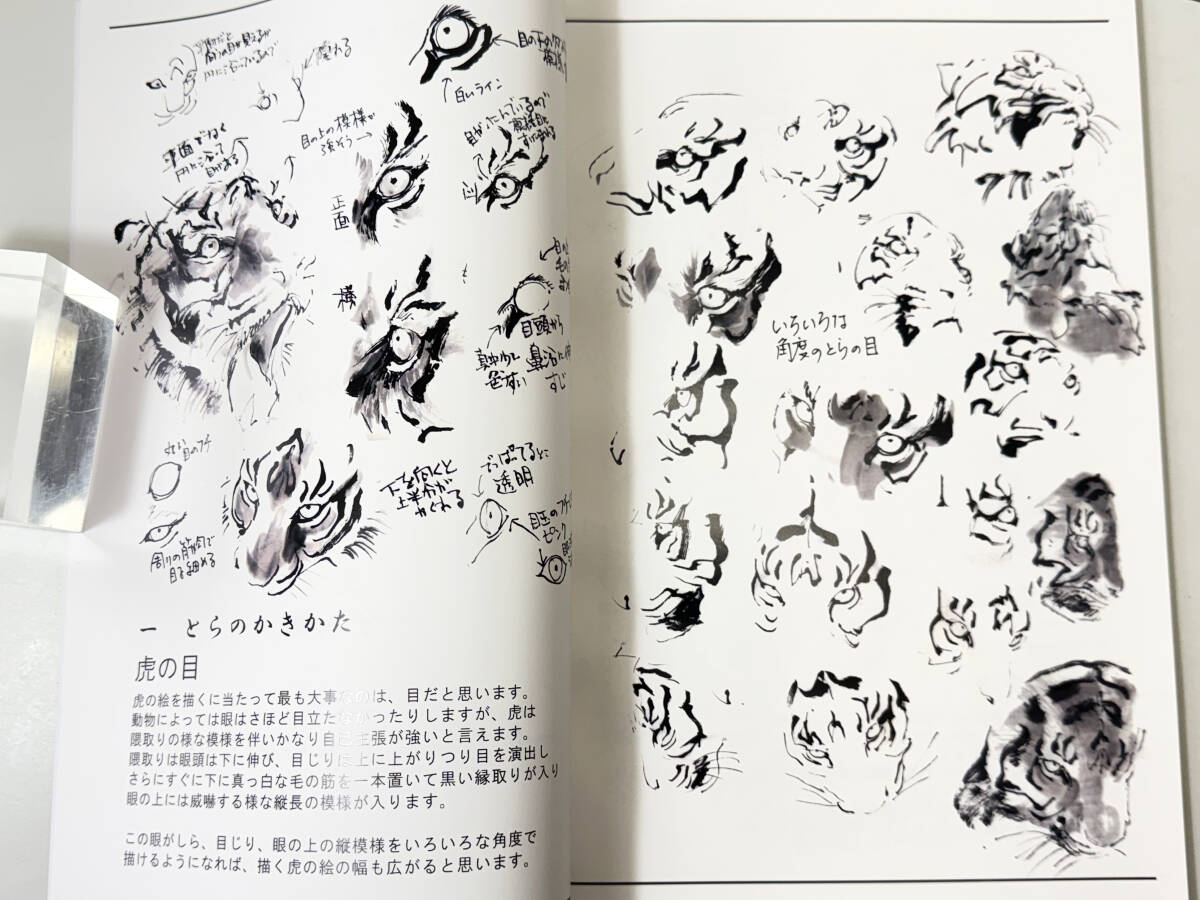 隠れる
白いライン
平面でなく
円に沿って
目がある
目の上の模様が
強そう
正面
横
目頭から
真中少し
色うすい
すじ
丸い目のフチ
周りの筋肉で
目を細める
上を向くと
上半分が
かくれる
でっぱってるとこ
透明
ピンク
一 とらのかきかた
虎の目
虎の絵を描くに当たって最も大事なのは、目だと思います。
動物によっては眼はさほど目立たなかったりしますが、虎は
隈取りの様な模様を伴いかなり自己主張が強いと言えます。
隈取りは眼頭は下に伸び、目じりは上に上がりつり目を演出し
さらにすぐに下に真っ白な毛の筋を一本置いて黒い縁取りが入り
眼の上には威嚇する様な縦長の模様が入ります。
この眼がしら、目じり、眼の上の縦模様をいろいろな角度で
描けるようになれば、描く虎の絵の幅も広がると思います。
いろいろな
角度のとらの目